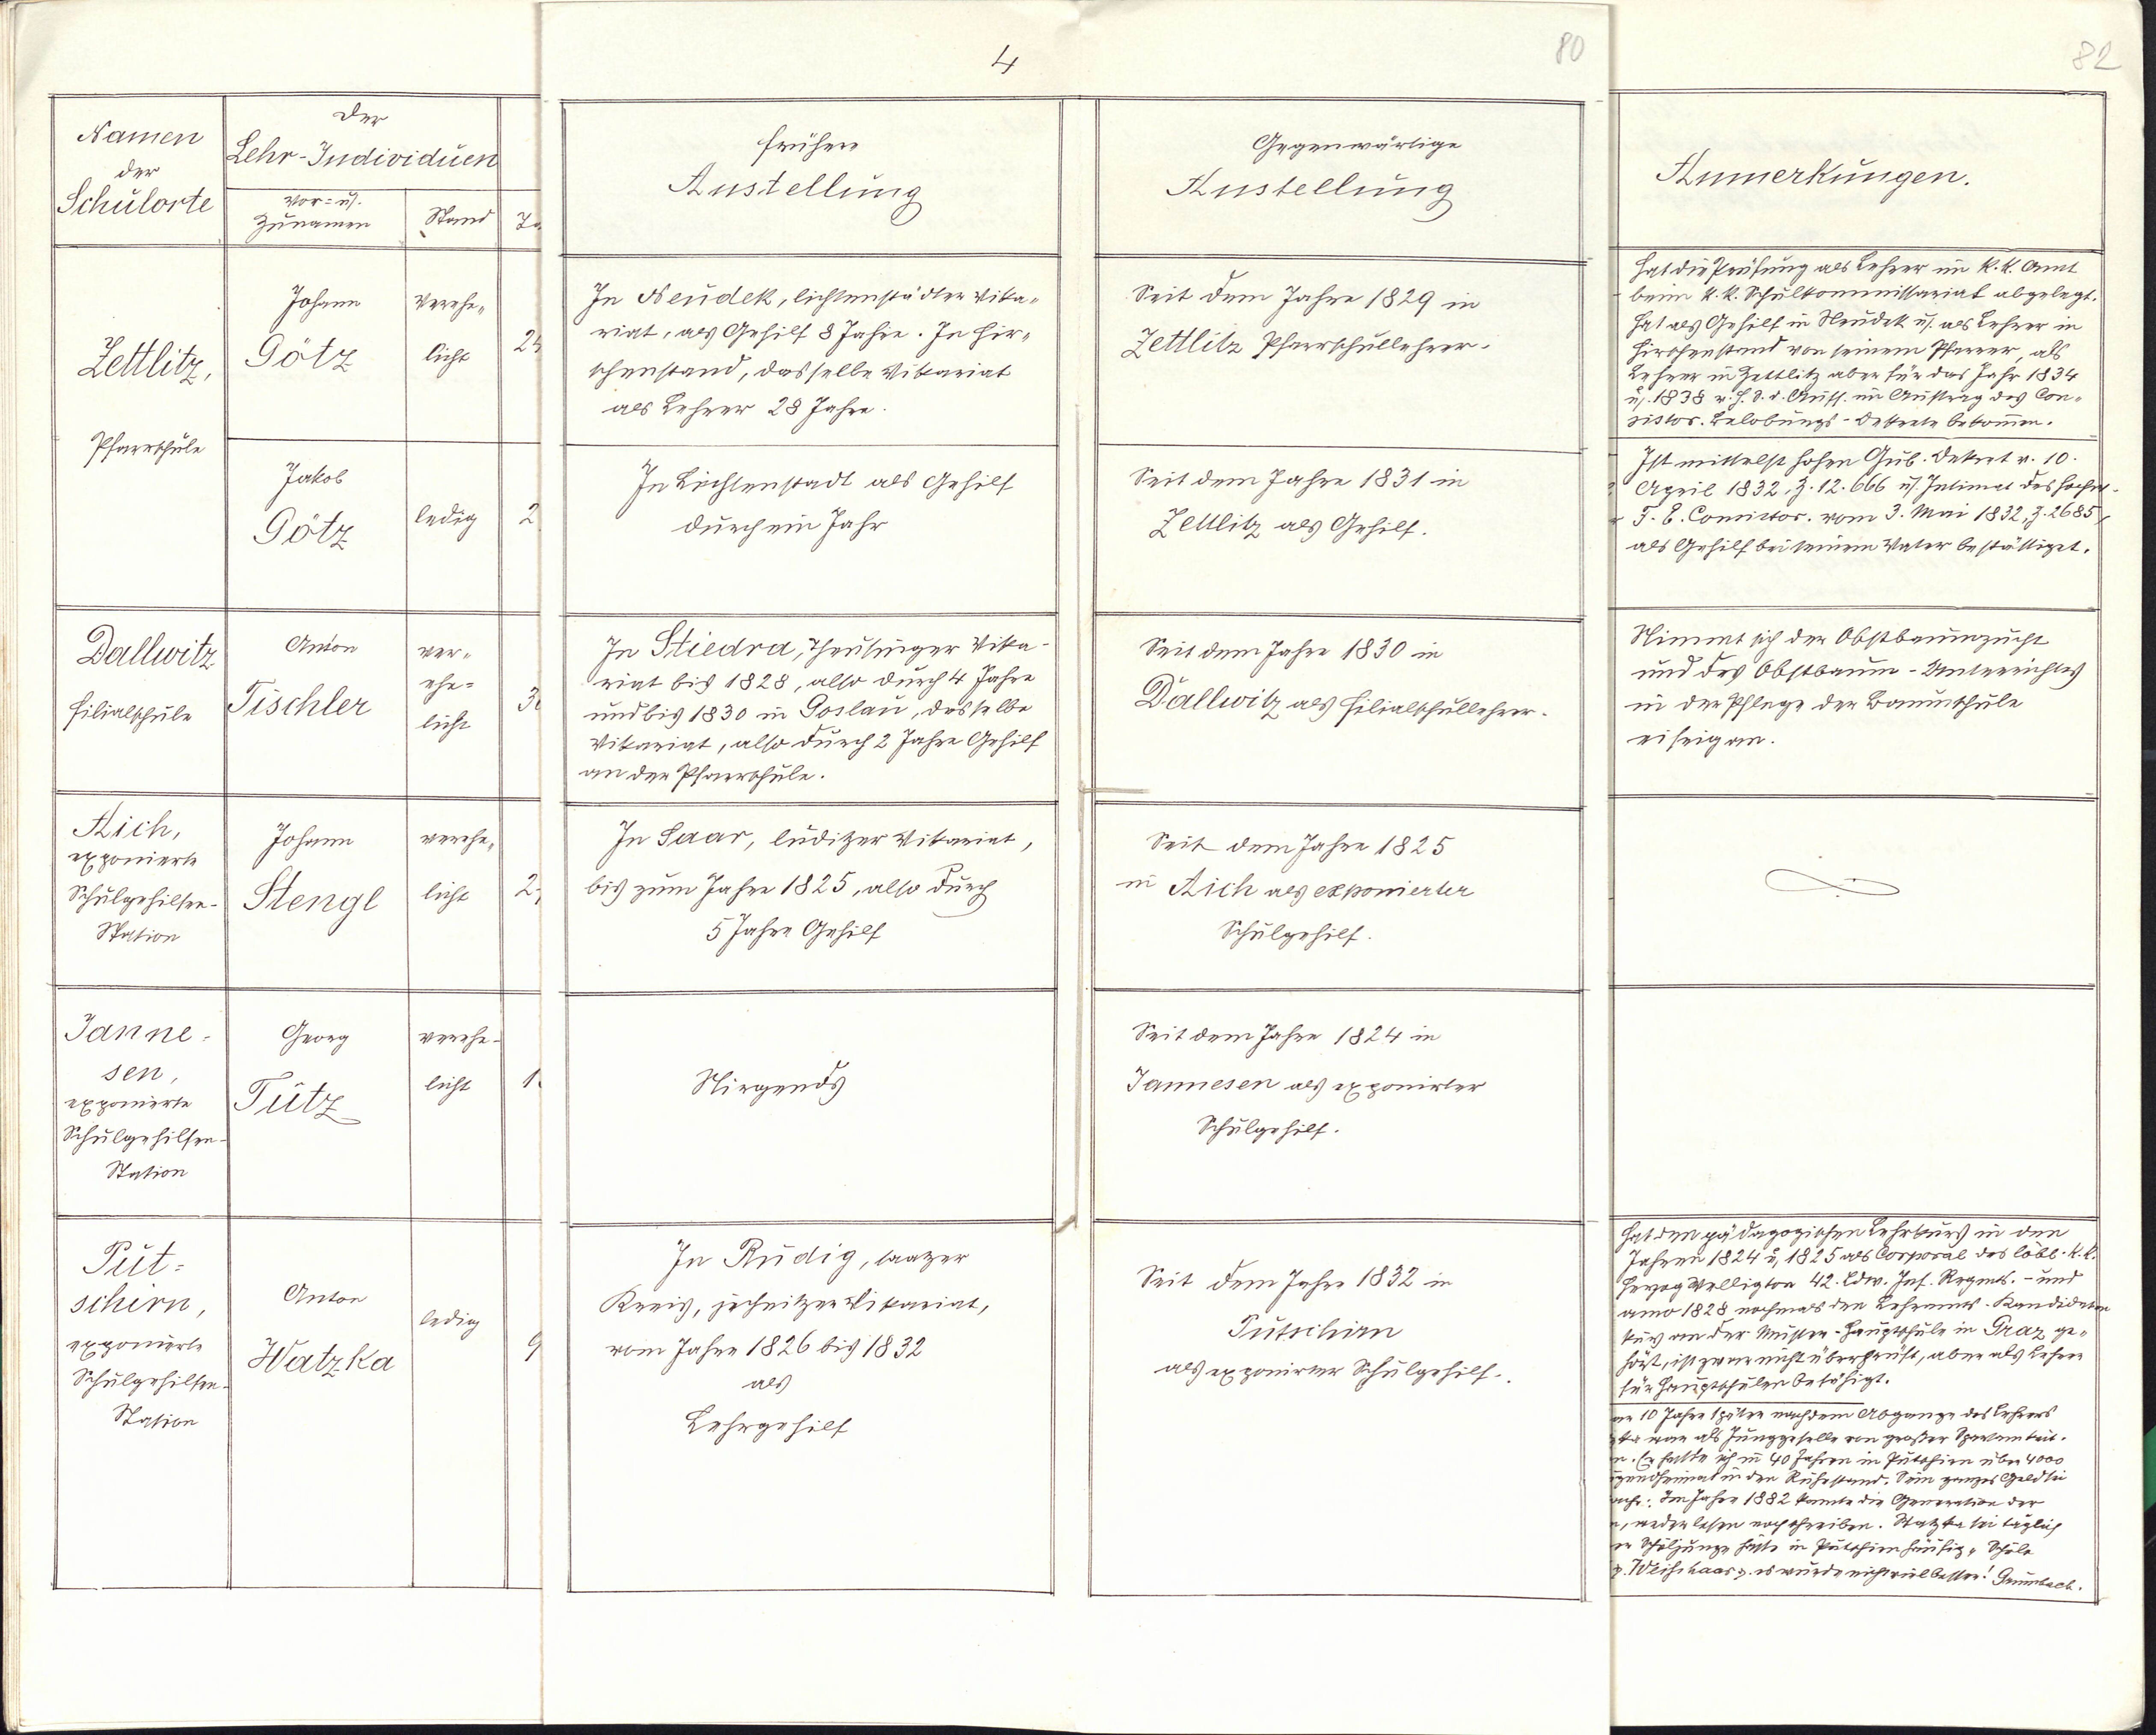 4
80
82
Namen
der
Schulorte
Der
Lehr-Individuen
Vor= u.
Zunamen
Stand
frühere
Anstellung
Gegenwärtige
Anstellung
Anmerkungen.
Zettlitz,
Pfarrschule
Johann
Götz
verehe„
licht
24
In Neudek, lichtenstädter Vika„
riat, als Gehilf 8 Jahre. In Hir„
schenstand, dasselbe Vikariat
als Lehrer 28 Jahre.
Seit dem Jahre 1829 in
Zettlitz Pfarrschullehrer.
Hat die Prüfung als Lehrer im k.k. Amt
beim k.k. Schulkommissariat abgelegt.
Hat als Gehilf in Neudek u. als Lehrer in
Hirschenstand von seinem Pfarrer, als
Lehrer in Zettlitz aber für das Jahr 1834
u. 1838 v. H. S. d. Auff. im Auftrag des Con„
sistor. Belobungs-Dekrete bekommen.
Jakob
Götz
ledig
2
In Lichtenstadt als Gehilf
durch ein Jahr
Seit dem Jahre 1831 in
Zettlitz als Gehilf.
Ist mittelst hohen Gub. Dekret v. 10.
April 1832, Z. 12.666 u. Intimat des hochw.
F. E. Consistor. vom 3. Mai 1832, Z. 2685,
als Gehilf bei seinem Vater bestättiget.
Dallwitz
Filialschule
Anton
Tischler
ver„
ehe=
licht
3
In Stiedra, Theusinger Vika-
riat bis 1828, also durch 4 Jahre
und bis 1830 in Goslau, desselbe
Vikariat, also durch 2 Jahre Gehilf
an der Pfarrschule.
Seit dem Jahre 1830 in
Dallwitz als Filialschullehrer.
Nimmt sich der Obstbaumzucht
und des Obstbaum-Unterrichtes
in der Pflege der Baumschule
eifrig an.
Aich,
exponierte
Schulgehilfen-
Station
Johann
Stengl
verehe„
licht
2
In Saar, luditzer Vikariat,
bis zum Jahre 1825, also durch
5 Jahre Gehilf
Seit dem Jahre 1825
in Aich als exponierter
Schulgehilf.
Janne-
sen,
exponierte
Schulgehilfen-
Station
Georg
Tütz
verehe-
licht
1
Nirgends
Seit dem Jahre 1824 in
Jannesen als exponirter
Schulgehilf.
Put=
schirn,
exponierte
Schulgehilfen-
Station
Anton
Watzka
ledig
9
In Rudig, saazer
Kreis, jechnitzer Vikariat,
vom Jahre 1826 bis 1832
als
Lehrgehilf
Seit dem Jahre 1832 in
Putschirn
als exponirter Schulgehilf.
Hat den pädagogischen Lehrkurs in den
Jahren 1824 u. 1825 als Corporal des löbl. k.k.
Herzog Welligton 42. Ldw. Inf. Regmts. - und
anno 1828 nochmals den Lehramts-Kandidaten
kurs an der Muster-Hauptschule in Graz ge„
hört, ist zwar nicht überprüft, aber als Lehrer
für Hauptschulen befähigt.
10 Jahre später nach dem Abgange des Lehrers
war als Junggeselle von großer Sparsamkeit.
Er hatte sich in 40 Jahren in Putschirn über 4000
in den Ruhestand. Sein ganzes Geld sei
Im Jahre 1882 konnte die Generation der
, weder lesen noch schreiben. Watzka sei täglich
Schuljunge hüte in Putschirn häufig „Schule
Weishaar es wurde nicht viel besser! Grumbach.